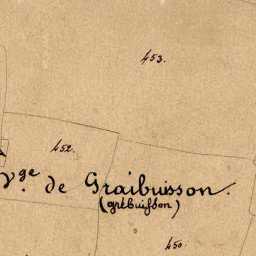 453.
452.
Vge. de Graibuisson.
(grébuisson)
450.